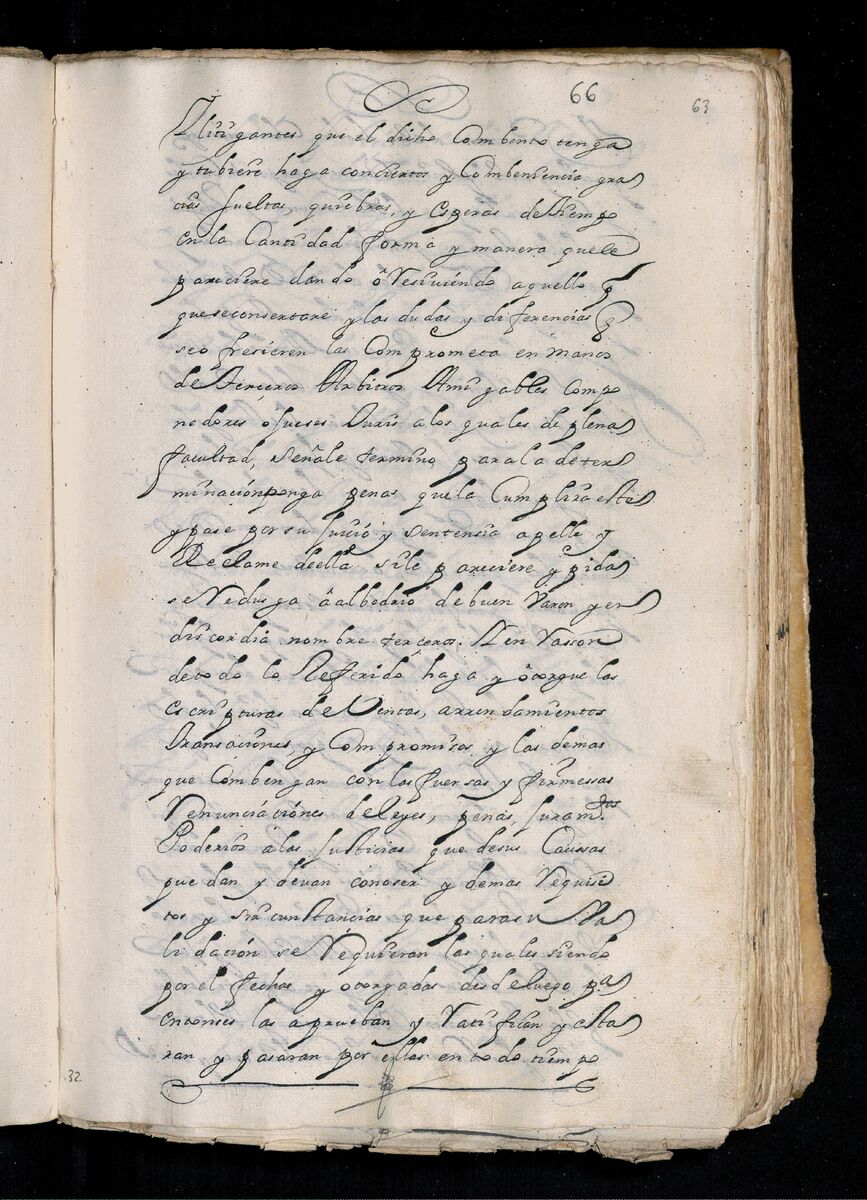 66
63
Y litigantes que el dicho Combento tenga
y tubiere haga conciertos y Combeniencia gra
cias sueltas, quiebras, y Esperas de tiempo
en la Cantidad forma y manera que le
pareciere dando ô Resiviendo aquello
que se consertare y las dudas y diferencias q
se ofresieren las Comprometa en manos
de terceros Arbitros Amigables compo
nedores o Jueses Juris a los quales de plena
facultad, señale termino para la deter
minación ponga penas que la Cumplira este
y pase por su Juicio y sentensia apelle y
Reclame de ella si le pareciere y pida
se Redusga â albedrio de buen Varon y en
discordia nombre terceros. Y en Rasson
de todo lo Referido haga y ôtorgue las
Escripturas de Ventas, arrendamientos
transaciones, y Compromisos y las demas
que Combengan con las fuersas y firmessas
Renunciaciónes de leyes, penas, Juram.tos
Poderios â las Justicias que de sus Caussas
puedan y devan conoser y demas Requisi
tos y sircunstancias que para su Va
lidación se Requieran las quales siendo
por el fechas y otorgadas desde luego pa
entonses las aprueban y Ratifican y esta
ran y pasaran por ellas en todo tiempo
32